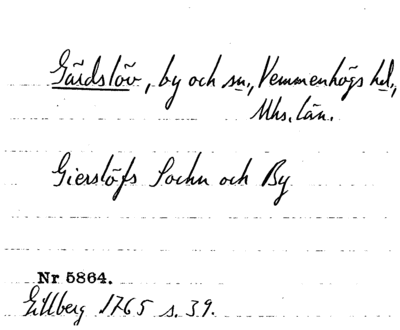 Gärdslöv, by och sn., Vemmenhögs hd.,
Mhs. län.
Gierslöfs Sochn och By
Nr 5864.
Gillberg 1765 s. 39.